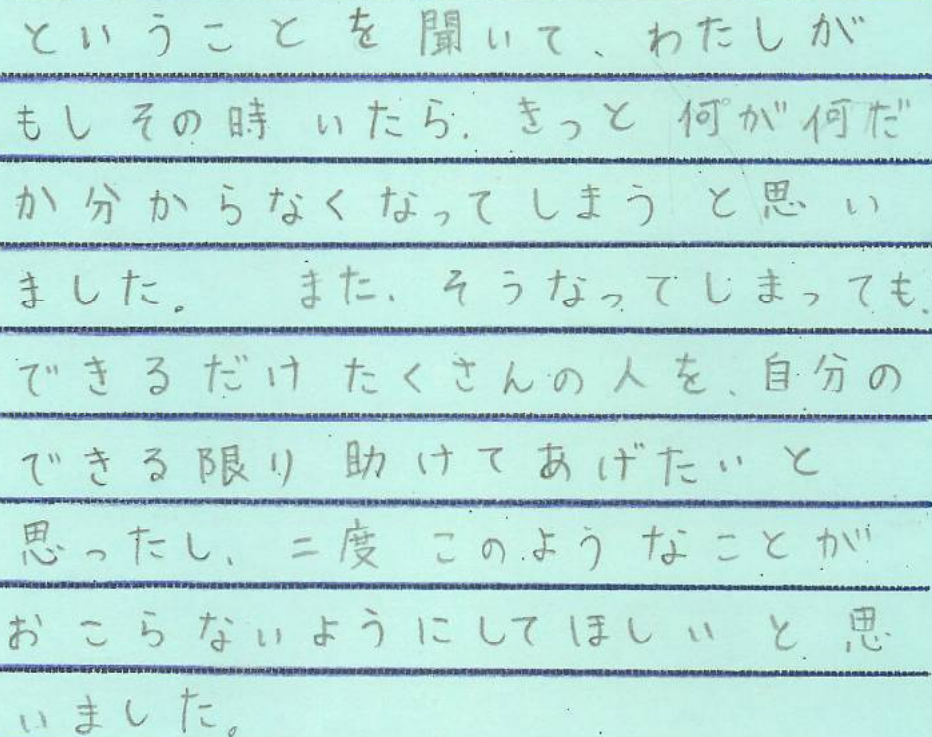 ということを聞いて、わたしが
もしその時いたら、きっと何が何だ
か分からなくなってしまうと思い
ました。　また、そうなってしまっても、
できるだけたくさんの人を、自分の
できる限り助けてあげたいと
思ったし、二度このようなことが
おこらないようにしてほしいと思
いました。